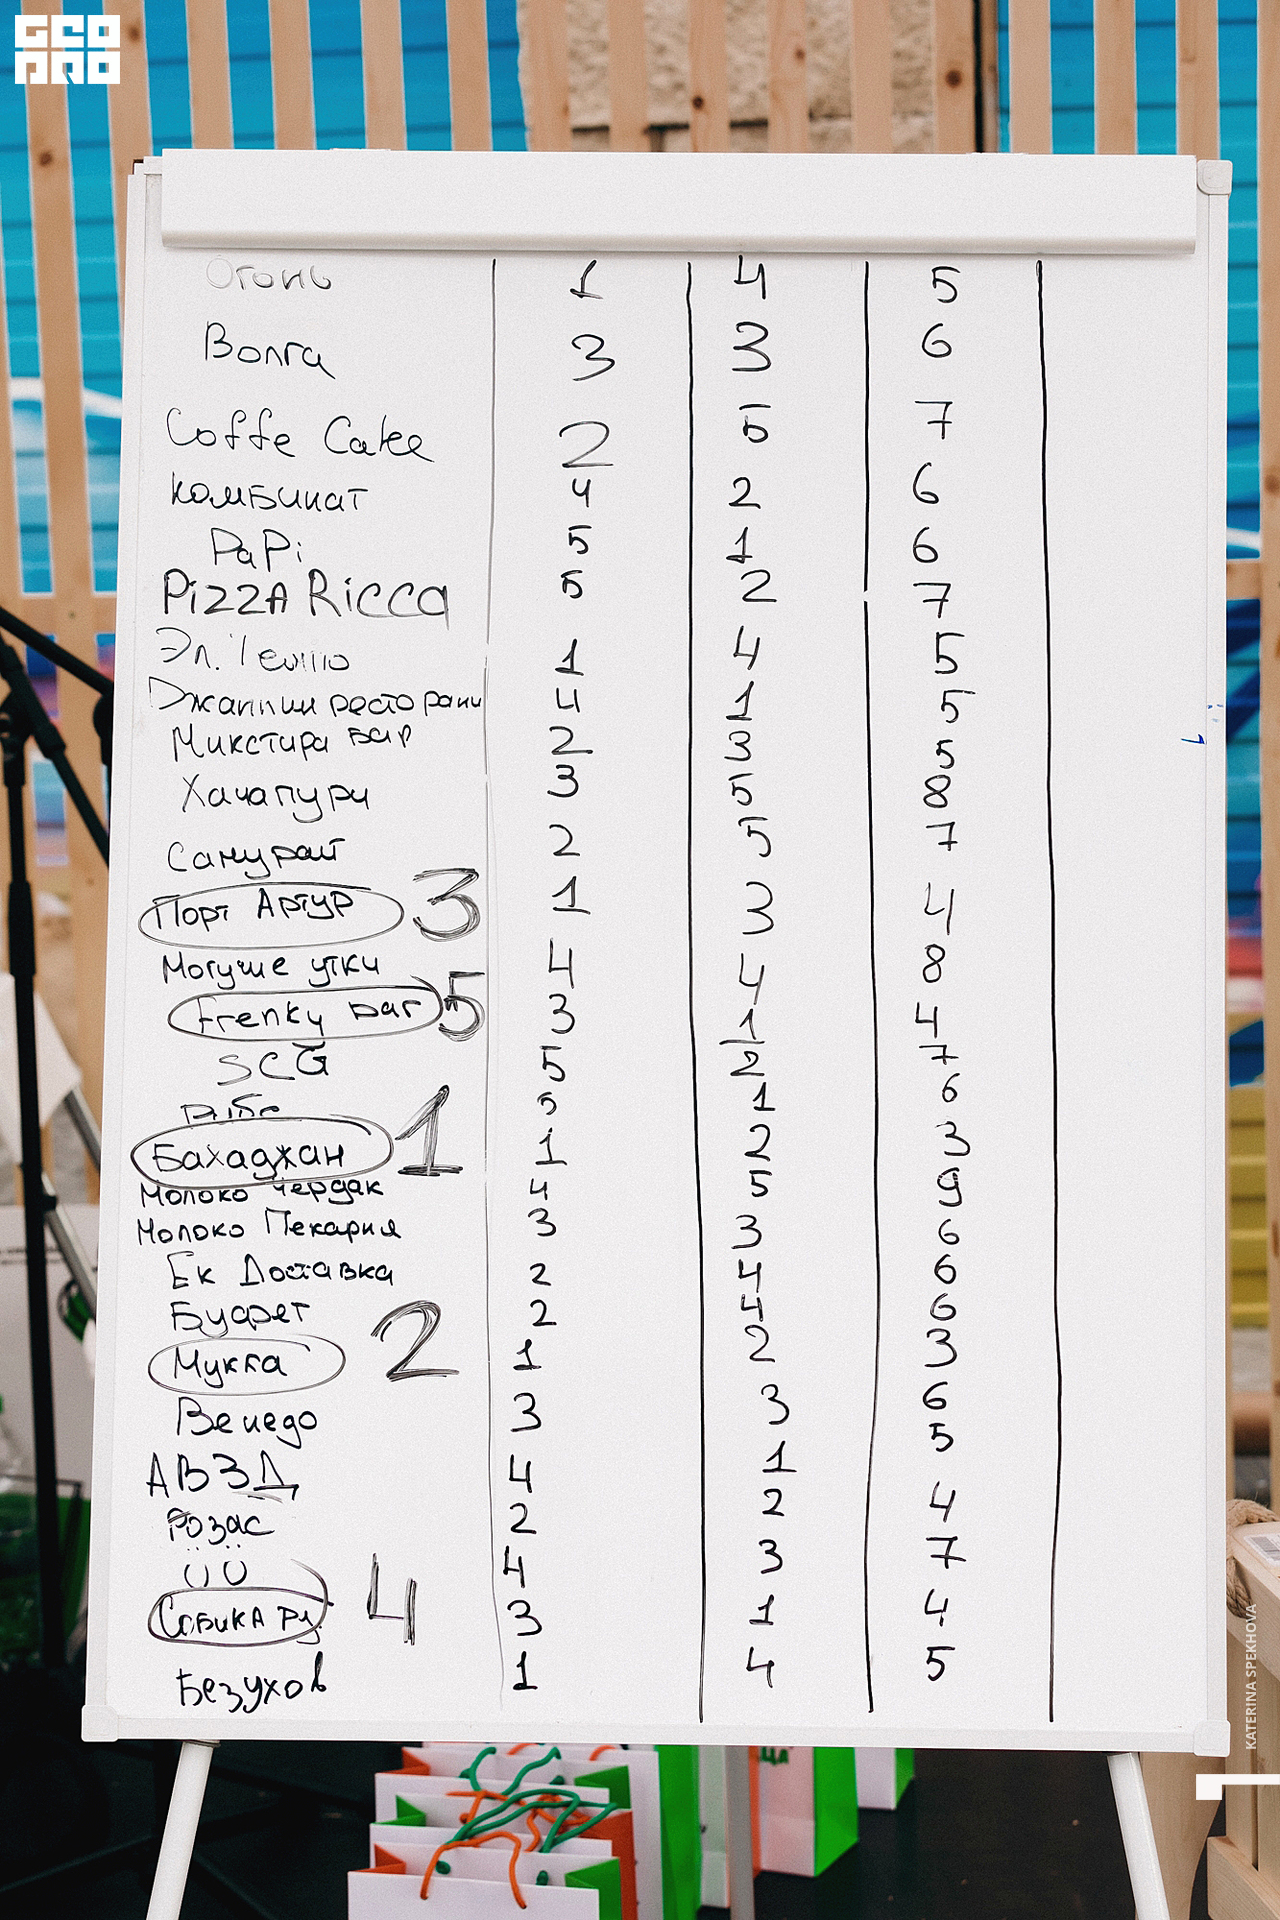 GEO
PRO
Огонь 1 4 5
Волга 3 3 6
Coffe Cake 2 5 7
Комбинат 4 2 6
PaPi 5 1 6
PiZZA Ricca 5 2 7
Эл. 1 4 5
ресторани 4 1 5
Микстура бар 2 3 5
Хачапури 3 5 8
Самурай 2 5 7
Порт Артур 3 1 3 4
Могучие утки 4 4 8
Frenky bar 5 3 1 4
SCG 5 2 7
5 1 6
Бахаджан 1 1 2 3
Молоко Чердак 4 5 9
Молоко Пекария 3 3 6
Ек Доставка 2 4 6
Буфет 2 4 6
Мукка 2 1 2 3
Венедо 3 3 6
АВЗД 4 1 5
Розас 2 2 4
ÜÜ 4 3 7
4 3 1 4
Безухов 1 4 5
KATERINA SPEKHOVA